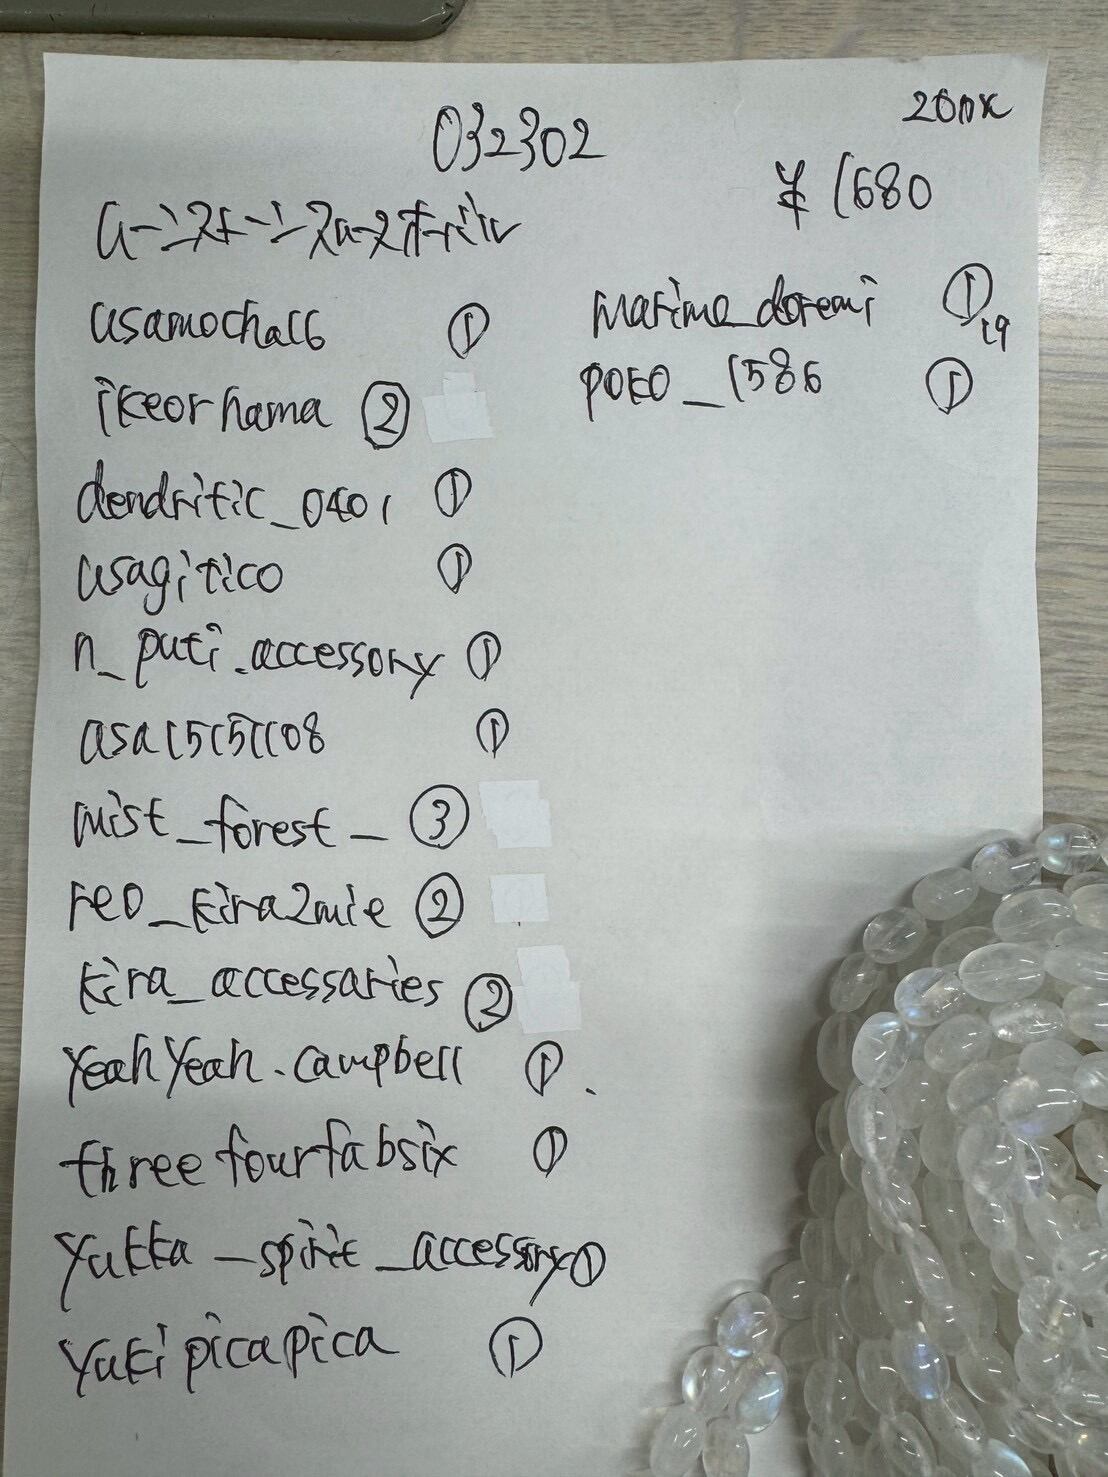 032302
200pc
¥1680
usamocha16 ①
ikeorhama ②
dendritic_0401 ①
usagitico ①
n_puti.accessory ①
asa15151108 ①
mist_forest_ ③
reo_kira2mie ②
kira_accessaries ②
yeahyeah.campbell ①
threefourfabsix ①
yukka_spirit_accessory ①
yukipicapica ①
marimo_doremi ①
19
poko_1586 ①